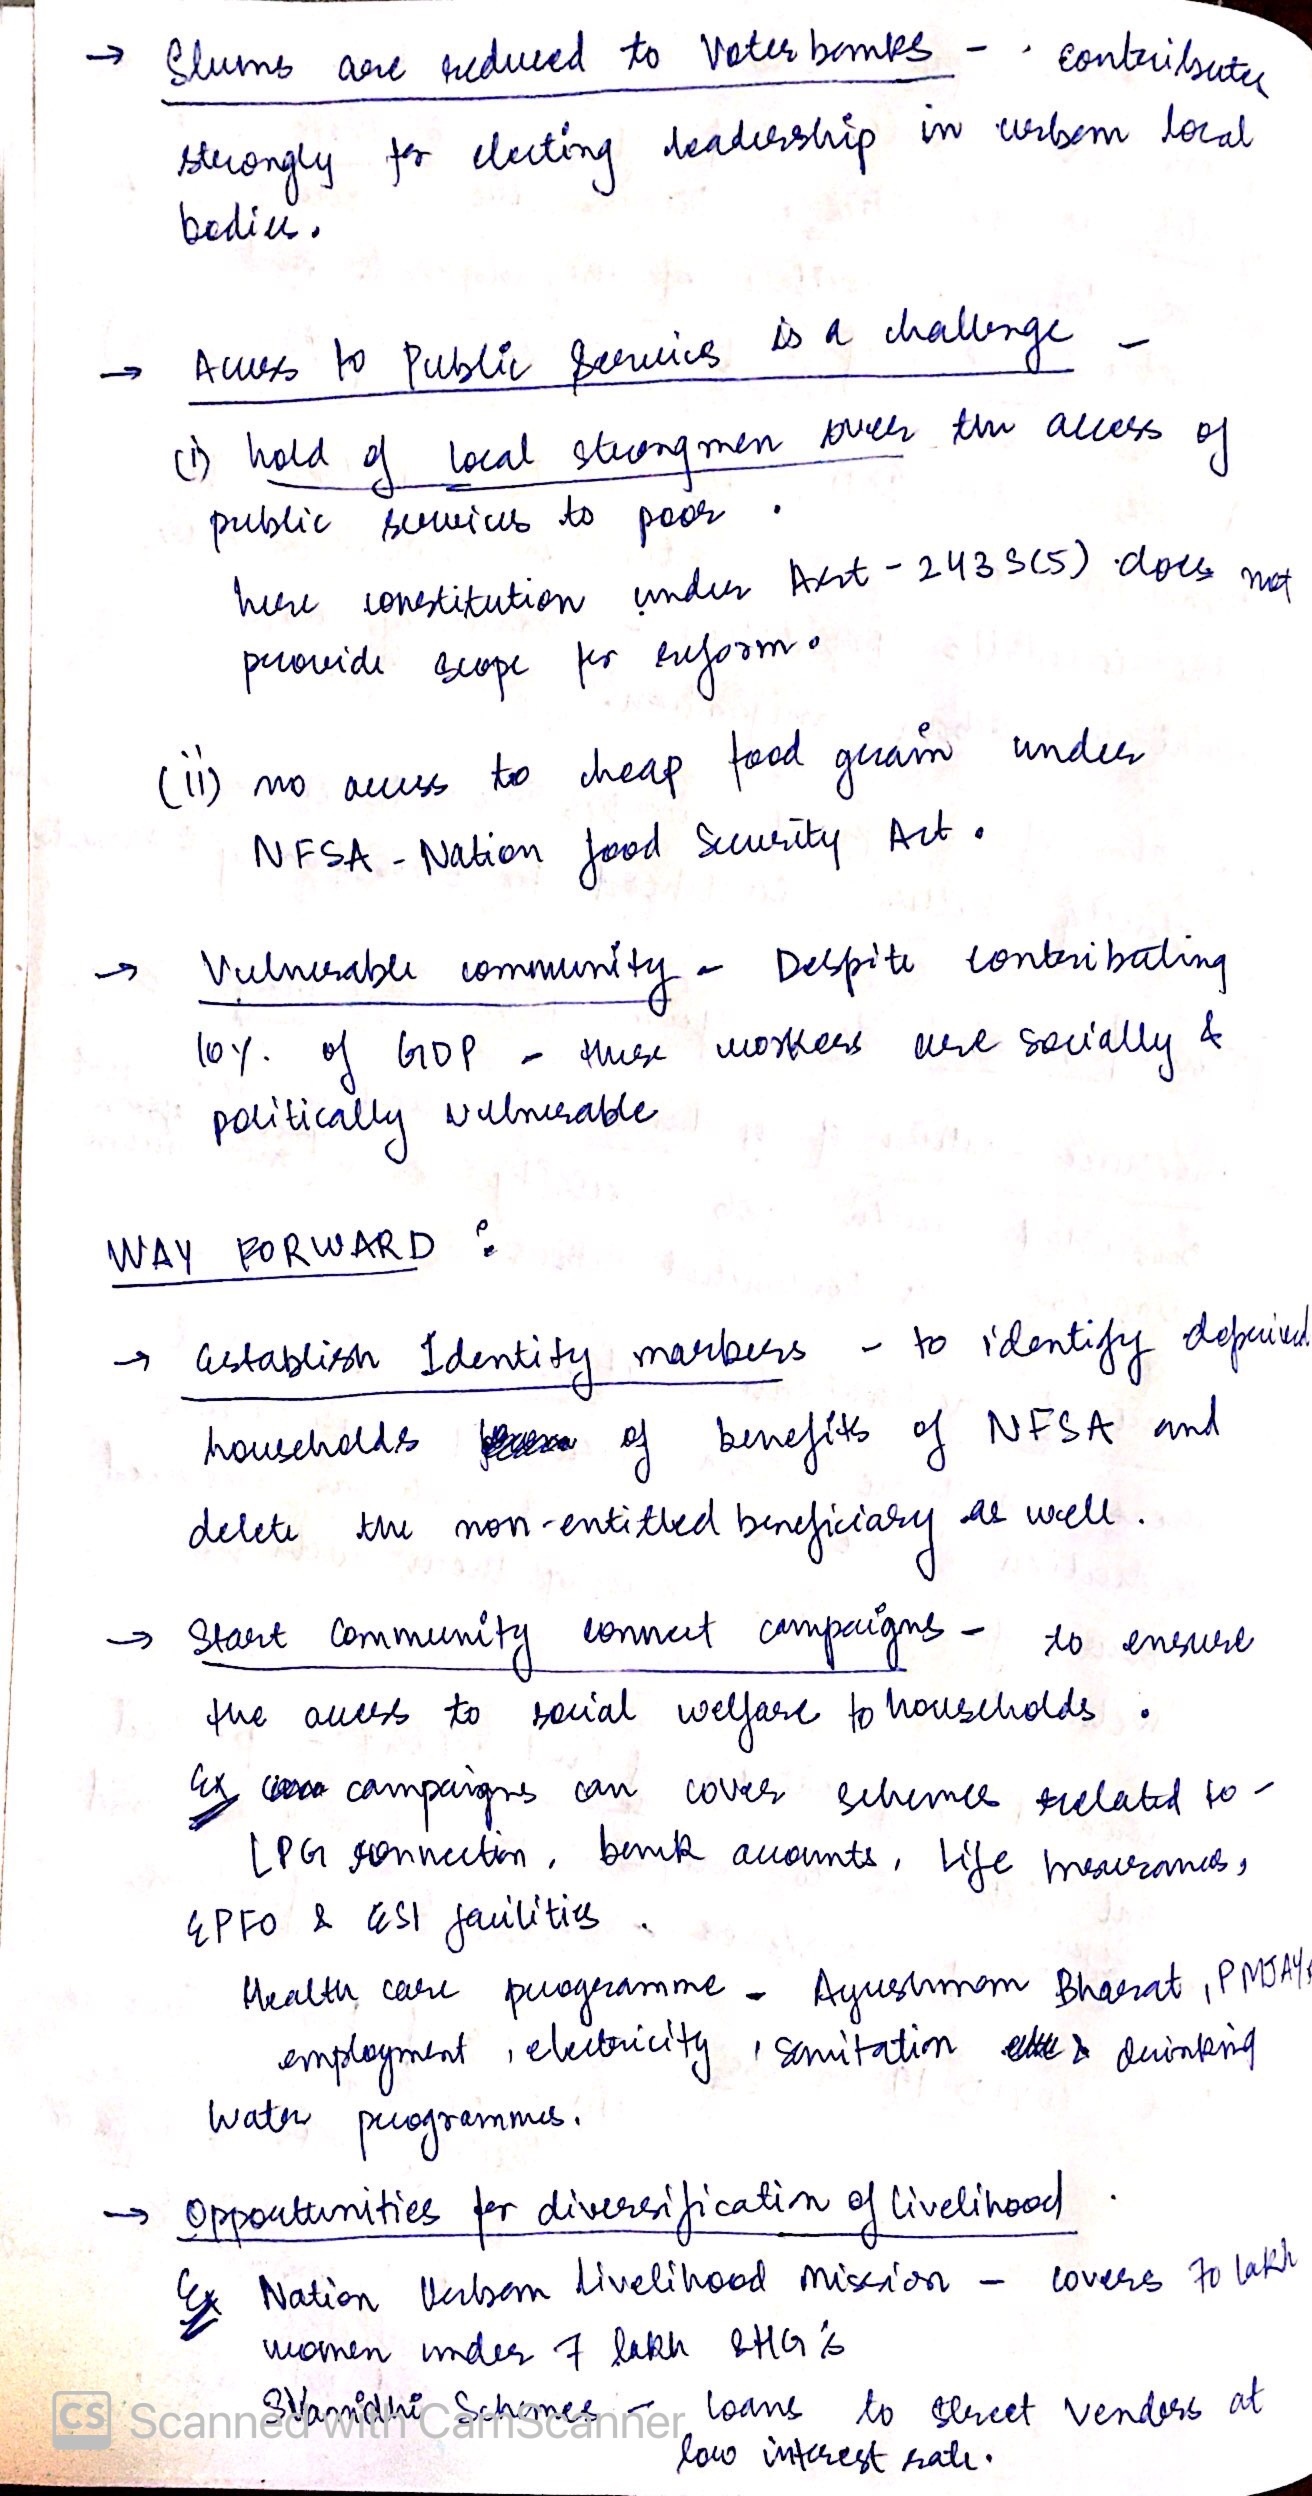 → Slums are reduced to Voter banks - contributes
strongly for electing leadership in urban local
bodies.
→ Access to Public Services is a challenge -
(i) hold of local strongmen over the access of
public services to poor.
here constitution under Art - 243 S(5) does not
provide scope for reform.
(ii) no access to cheap food grain under
NFSA - Nation food Security Act.
→ Vulnerable community - Despite contributing
10% of GDP - these workers are socially &
politically vulnerable
WAY FORWARD :
→ Establish Identity markers - to identify deprived
households of benefits of NFSA and
delete the non-entitled beneficiary as well.
→ Start Community connect campaigns - to ensure
the access to social welfare to households.
Ex campaigns can cover schemes related to -
LPG connection, bank accounts, Life Insurances,
EPFO & ESI facilities.
Health care programme - Ayushman Bharat, PMJAY,
employment, electricity, sanitation & drinking
water programmes.
→ Opportunities for diversification of livelihood.
Ex Nation Urban Livelihood Mission - covers 70 lakh
women under 7 lakh SHG's
SVanidhi Schemes - loans to street vendors at
low interest rate.
CS Scanned with CamScanner